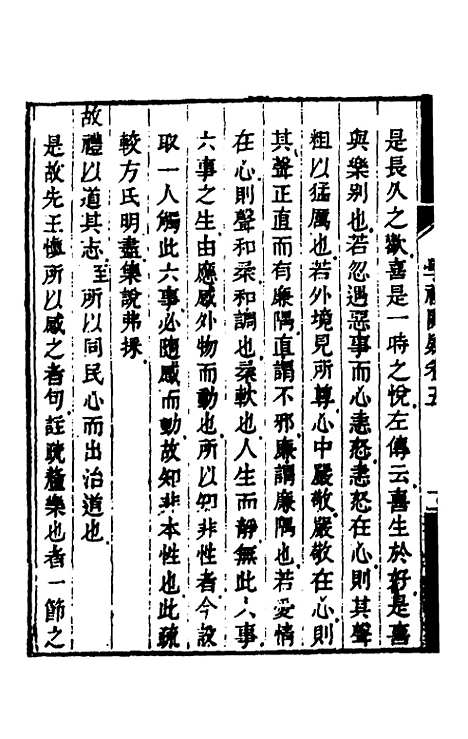 是長久之歡喜是一時之悅左傳云喜生於好是喜
與樂別也若忽遇惡事而心恚怒恚怒在心則其聲
粗以猛厲也若外境見所尊心中嚴敬嚴敬在心則
其聲正直而有廉隅直謂不邪廉謂廉隅也若愛情
在心則聲和柔和調也柔軟也人生而靜無此六事
六事之生由應感外物而動也所以知非性者今設
取一人觸此六事必隨感而動故知非本性也此疏
較方氏明盡集說弗採
故禮以道其志至所以同民心而出治道也
是故先王慎所以感之者句註疏釐樂也者一節之